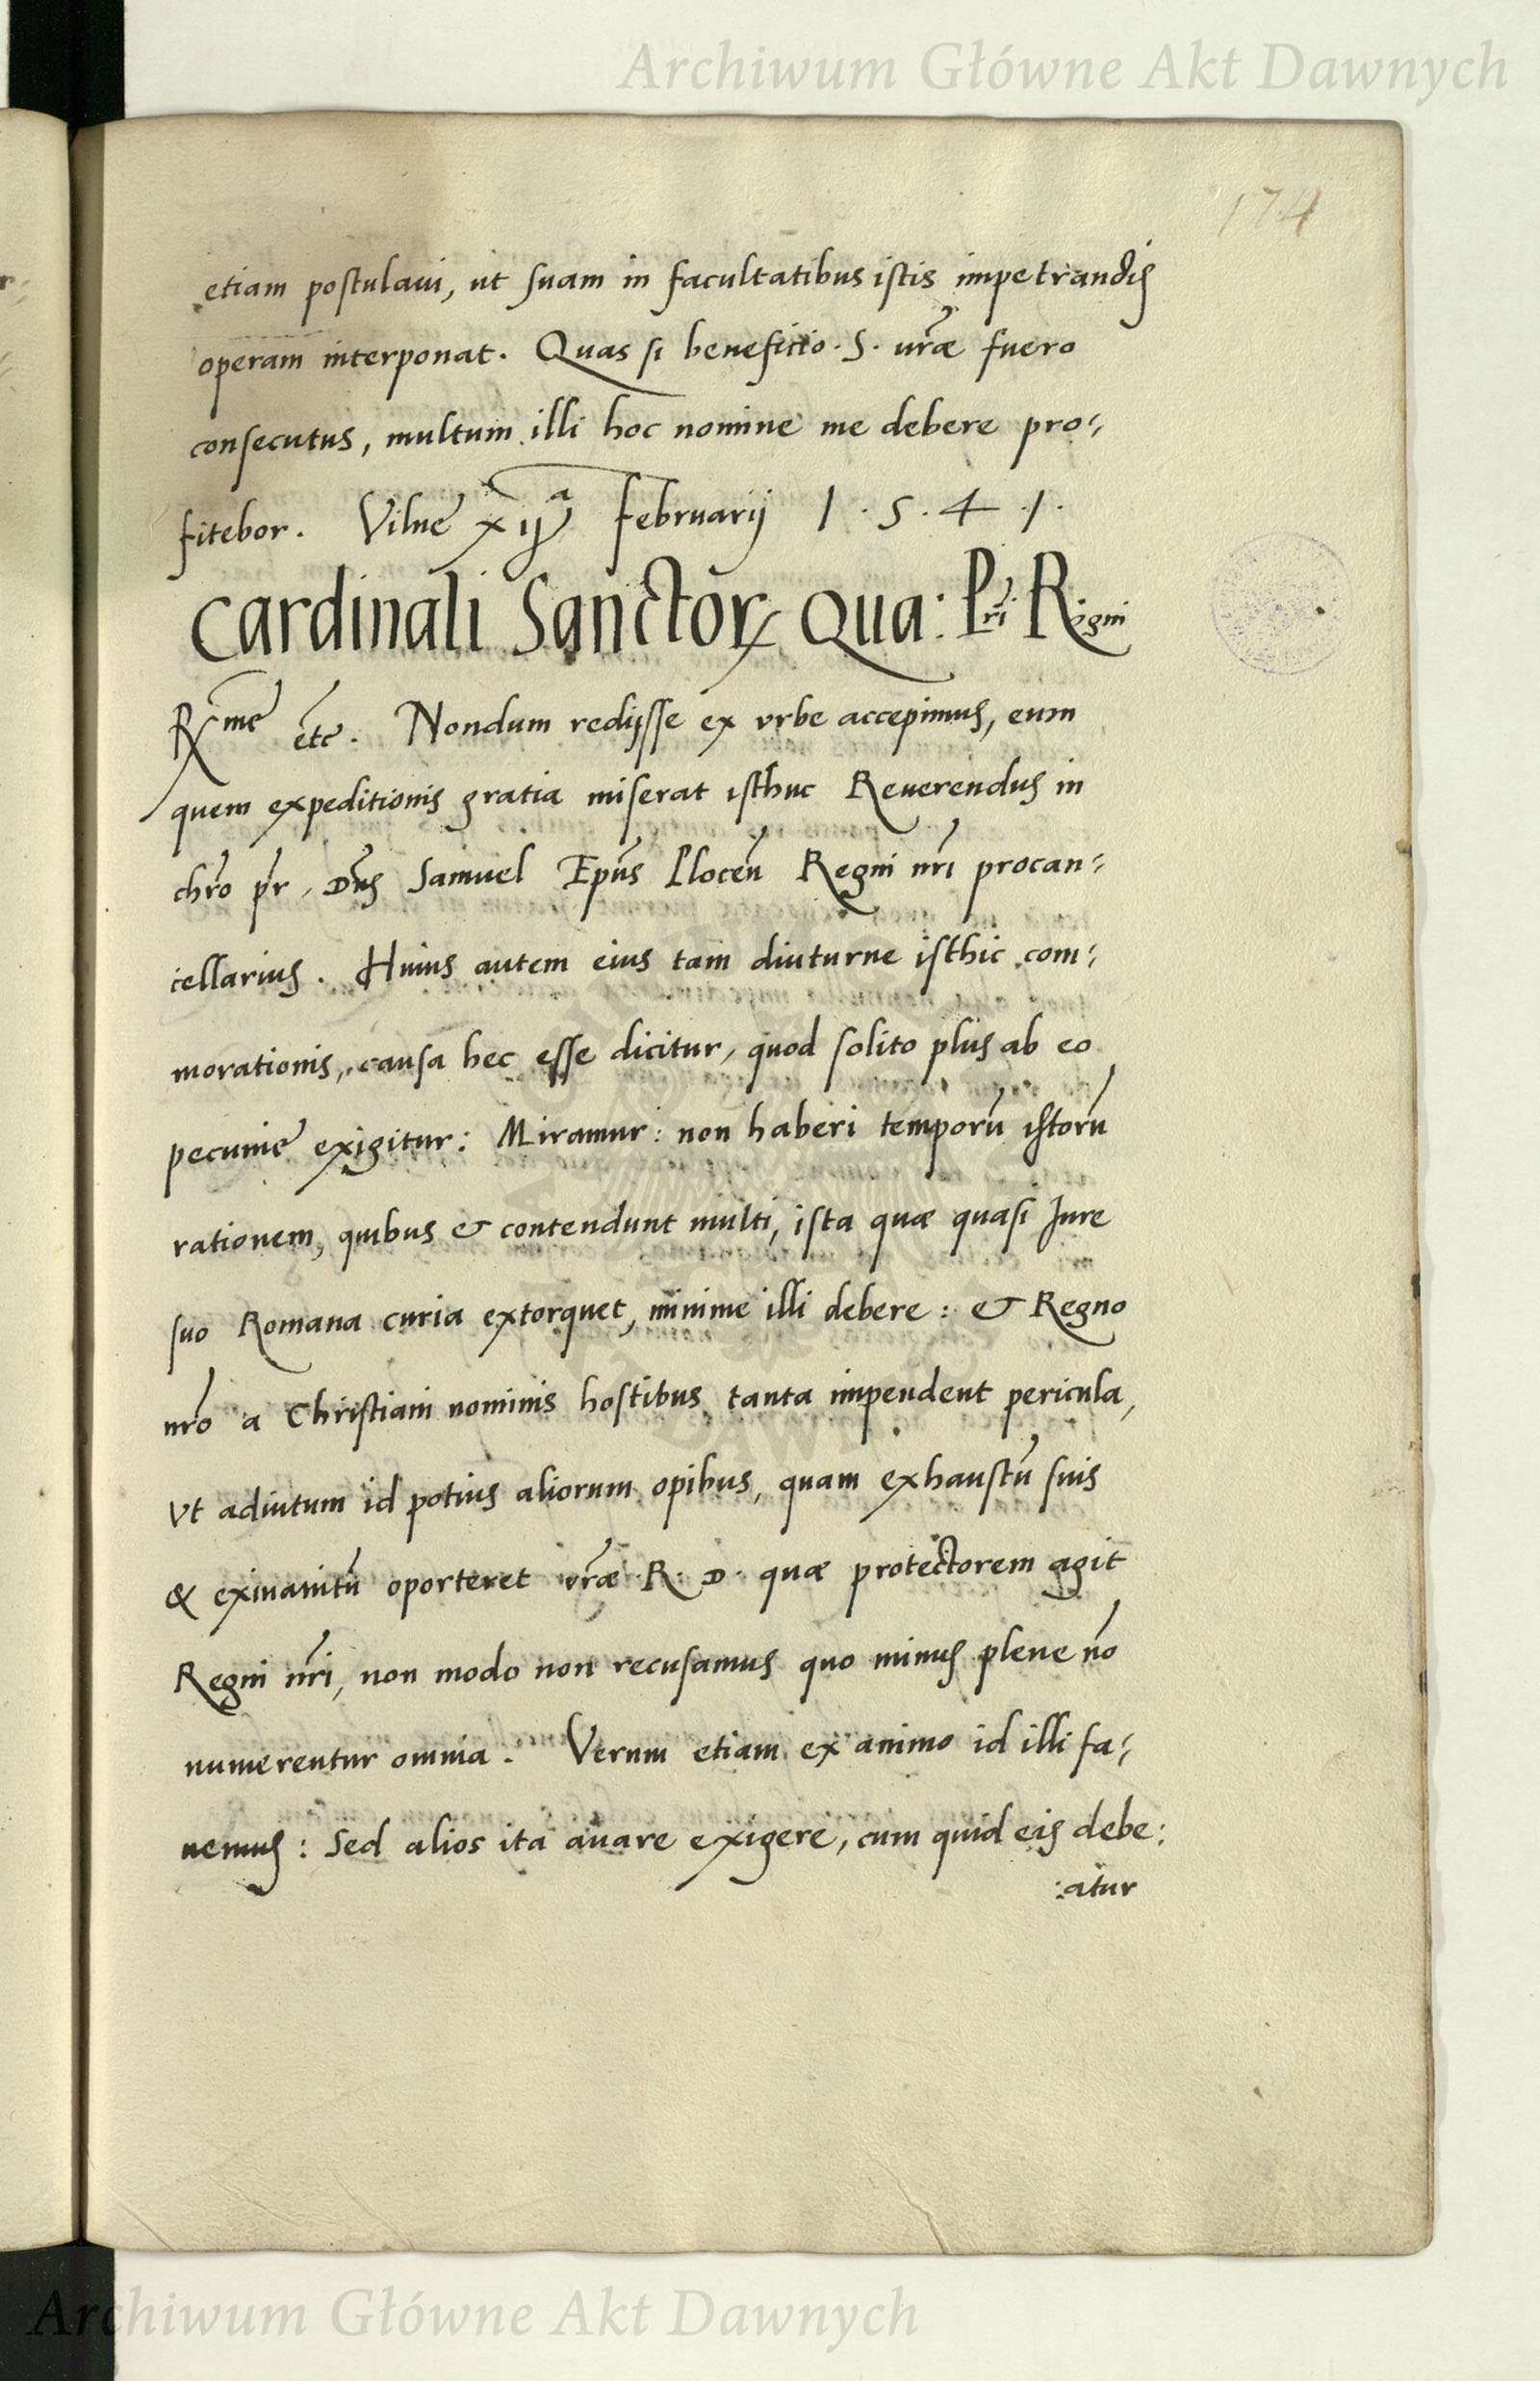 Archiwum Główne Akt Dawnych
174
etiam postulaui, ut suam in facultatibus istis impetrandis
operam interponat. Quas si beneficio .S. vrae fuero
consecutus, multum illi hoc nomine me debere pro-
fitebor. Vilne xija Februarij 1.5.4.1.
Cardinali Sanctor Qua: Pri Regni
Rme etc. Nondum redijsse ex vrbe accepimus, eum
quem expeditionis gratia miserat isthuc Reuerendus in
chro pr, Dns Samuel Epus Plocen Regni nri procan-
cellarius. Huius autem eius tam diuturne isthic com-
morationis, causa hec esse dicitur, quod solito plus ab eo
pecunie exigitur: Miramur: non haberi temporu istoru
rationem, quibus & contendunt multi, ista quae quasi Jure
suo Romana curia extorquet, minime illi debere: & Regno
nro a Christiani nominis hostibus tanta impendent pericula,
vt adiutum id potius aliorum opibus, quam exhaustu suis
& exinanitu oporteret vrae .R. D. quae protectorem agit
Regni nri, non modo non recusamus quo minus plene no
numerentur omnia. Verum etiam ex animo id illi fa-
uemus: Sed alios ita auare exigere, cum quid eis debe:
:atur
Archiwum Główne Akt Dawnych